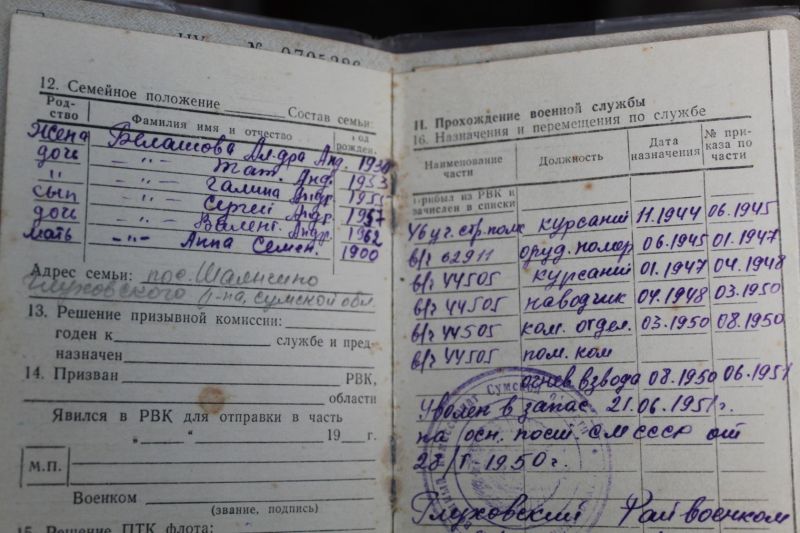 № 0705286
12. Семейное положение Состав семьи:
Род-
ство
Фамилия имя и отчество
Год
рожден.
Жена Белашова Ал-дра Анд. 1930
дочь —"— Тат. Андр. 1953
" —"— Галина Андр. 1955
сын —"— Сергей Андр. 1957
дочь —"— Валент. Андр. 1962
мать —"— Анна Семен. 1900
Адрес семьи: пос. Шалыгино
Глуховского р-на, Сумской обл.
13. Решение призывной комиссии:
годен к службе и пред-
назначен
14. Призван РВК,
области
Явился в РВК для отправки в часть
„ “ 19 г.
М.П.
Военком
(звание, подпись)
15. Решение ПТК флота:
II. Прохождение военной службы
16. Назначения и перемещения по службе
Наименование
части
Должность
Дата
назначения
№ при-
каза по
части
Прибыл из РВК и
зачислен в списки
46 уч. стр. полк курсант 11.1944 06.1945
в/ч 62911 оруд. номер 06.1945 01.1947
в/ч 44505 курсант 01.1947 04.1948
в/ч 44505 наводчик 04.1948 03.1950
в/ч 44505 ком. отдел. 03.1950 08.1950
в/ч 44505 пом. ком
огнев. взвода 08.1950 06.1951
Уволен в запас 21.06.1951г.
на осн. пост. СМ СССР от
1950г.
Глуховский Райвоенком